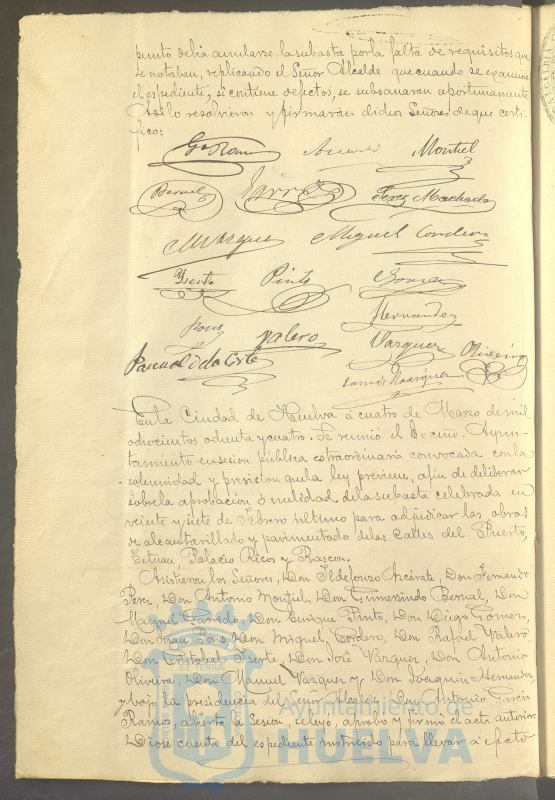 punto debia anularse la subasta por la falta de requisitos que
se notaban, replicando el Señor Alcalde que cuando se examine
el espediente, si contiene defectos, se subsanaran oportunamente
Asi lo resolvieron y firmarán dichos Señores de que certi-
fico:
Ga Ramos Azcarate Montiel
Bernal Garrido Perez Machado
M Vazquez Miguel Cordero
Yserte Pinto Gomez
Hernandez
Pons Valero Vazquez Oliveira
Pascual de la Corte
Tomás Rodriguez
En la Ciudad de Huelva á cuatro de Marzo de mil
ochocientos ochenta y cuatro. Se reunió el Excmo. Ayun-
tamiento en sesion pública estraordinaria convocada con la
solemnidad y presicion que la ley previene, afin de deliberar
sobre la aprobacion ó nulidad de la subasta celebrada en
veinte y siete de Febrero último para adjudicar las obras
de alcantarillado y pavimentado de las Calles del Puerto,
Tetuan, Palacio, Ricos y Rascon.
Asistieron los Señores, Don Ildefonzo Azcárate, Don Fernando
Perez, Don Antonio Montiel, Don Gumersindo Bernal, Don
Manuel Garrido, Don Enrique Pinto, Don Diego Gomez,
Don Juan Pons, Don Miguel Cordero, Don Rafael Valero,
Don Cristobal Yserte, Don José Vazquez, Don Antonio
Oliveira, Don Manuel Vazquez y Don Joaquin Hernandez
y bajo la presidencia del Señor Alcalde Don Antonio Garcia
Ramos, abierta la Sesion, se leyó, aprobó y firmó el acta anterior.
Diose cuenta del espediente instruido para llevar á efecto
Ayuntamiento de
HUELVA